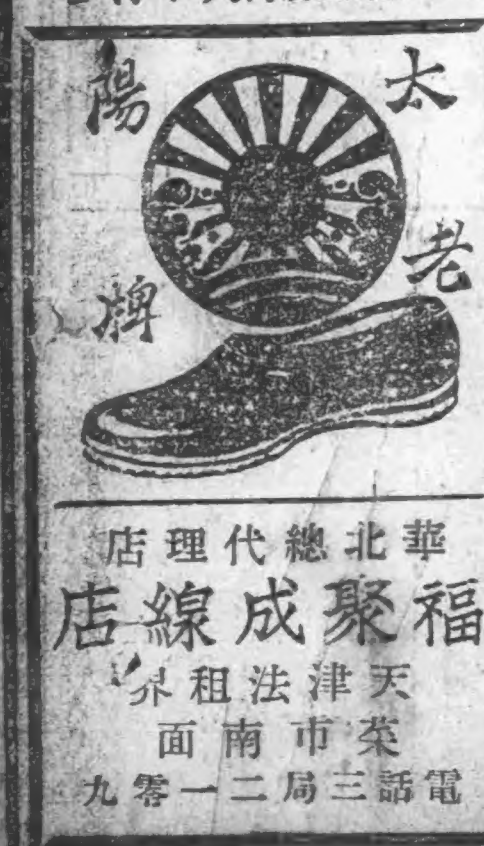 太陽
老牌
華北總代理店
福聚成線店
天津法租界
菜市南面
電話三局二一零九